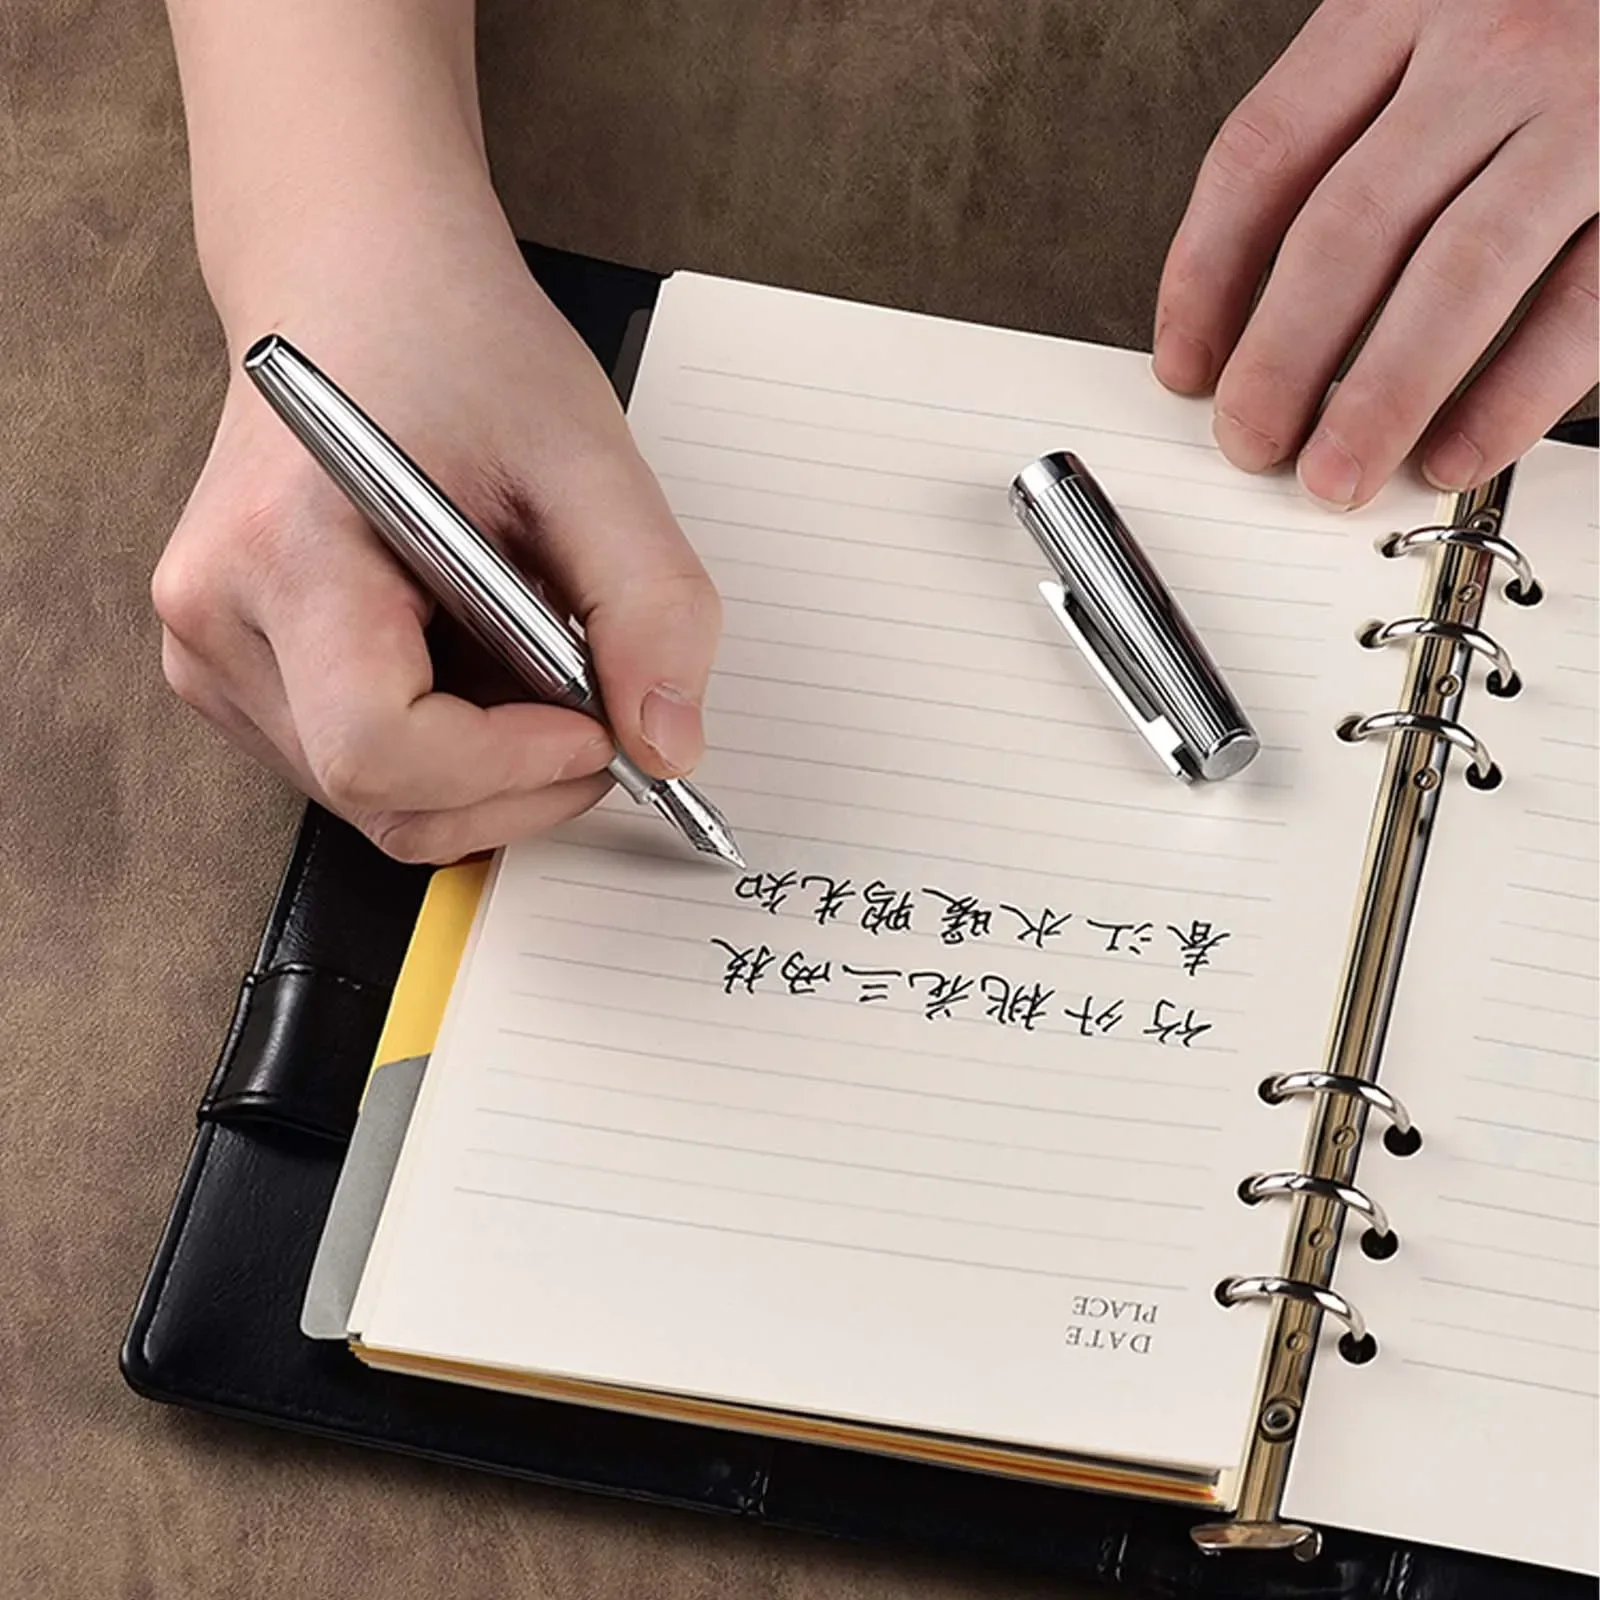 PLACE
DATE
竹外桃花三两枝
春江水暖鸭先知